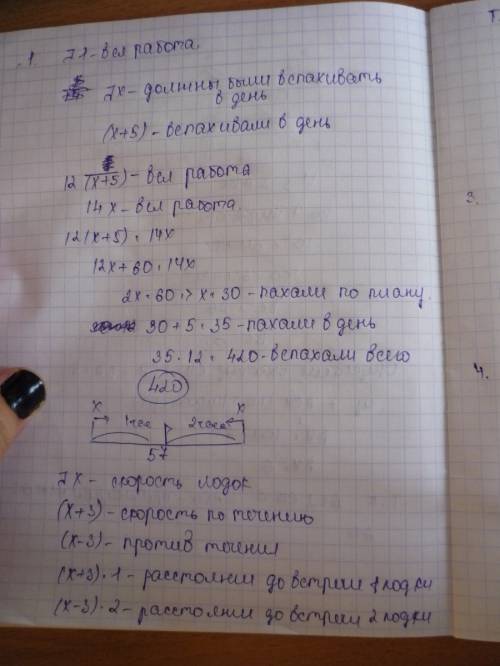 1 J 1 - вся работа
J х - должны были вспахивать
в день
(х+5) - вспахивали в день
12 (х+5) - вся работа
14 х - вся работа
12(х+5) = 14х
12х + 60 = 14х
2х = 60 => х = 30 - пахали по плану
30 + 5 = 35 - пахали в день
35 · 12 = 420 - вспахали всего
420
х 1 час 2 часа х
57
J х - скорость лодок
(х+3) - скорость по течению
(х-3) - против течения
(х+3) · 1 - расстояние до встречи 1 лодки
(х-3) · 2 - расстояние до встречи 2 лодки
3.
4.